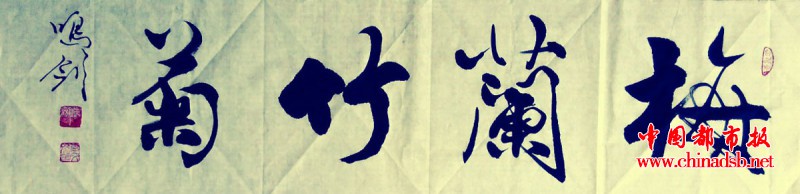 梅蘭竹菊
鳴剑
中国都市报
www.chinadsb.net